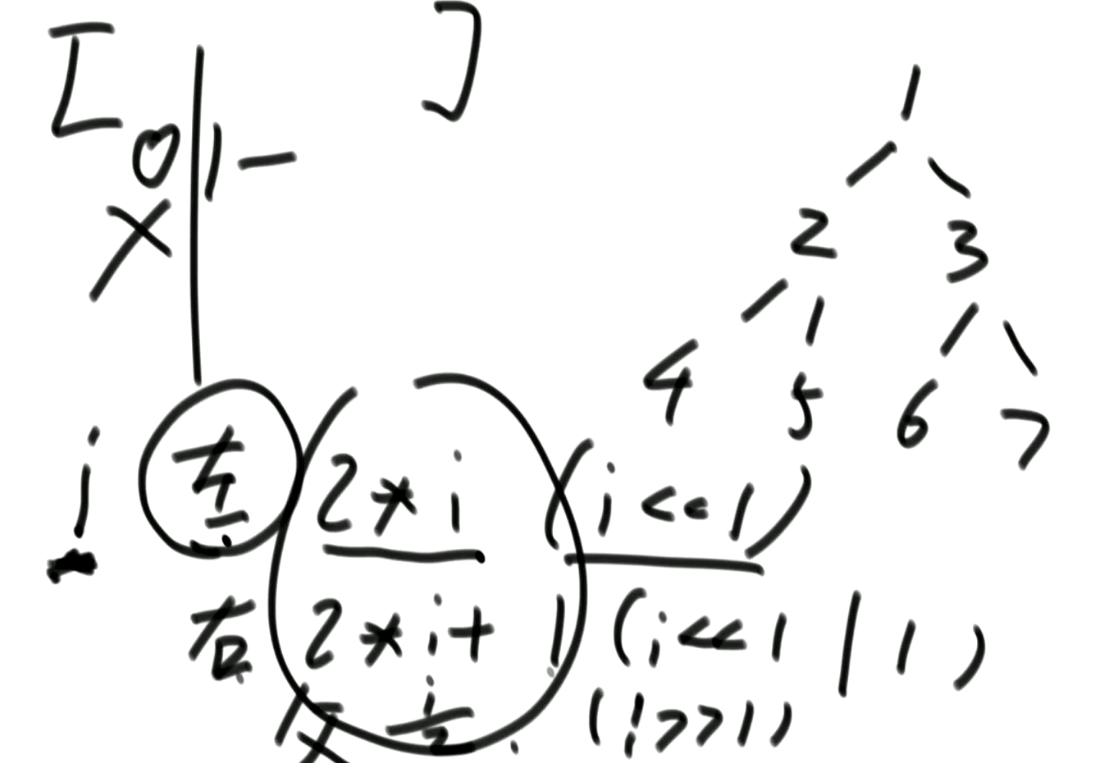 [ ]
0 | 1 -
X
1
2 3
4 5 6 7
i 左 2*i (i<<1)
右 2*i+1 (i<<1|1)
父 i/2 (i>>1)